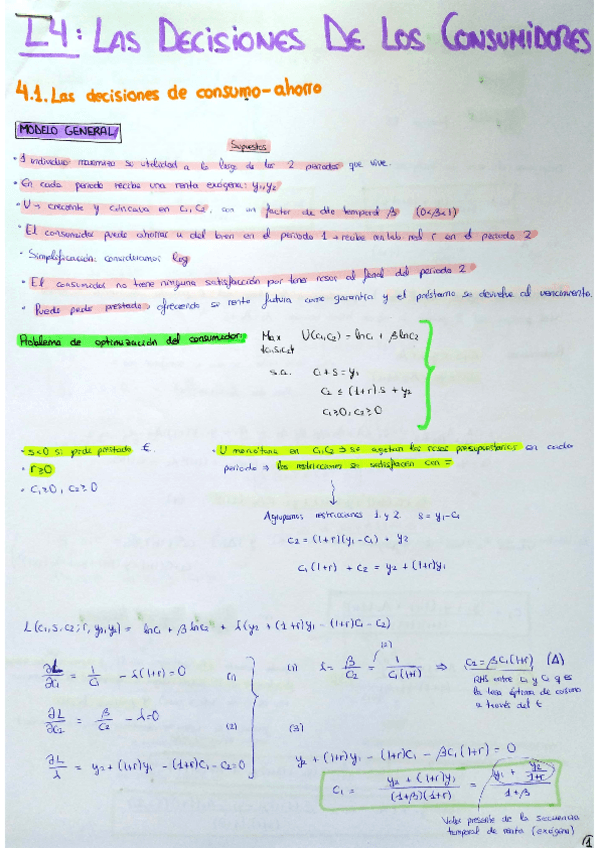 I4: LAS DECISIONES DE LOS CONSUMIDORES
4.1. Las decisiones de consumo-ahorro
MODELO GENERAL
Supuestos
· 1 individuo maximiza su utilidad a lo largo de los 2 periodos que vive.
· En cada periodo recibe una renta exógena: y₁, y₂
· U → creciente y cóncava en C₁, C₂, con un factor de dto temporal β (0<β<1)
· El consumidor puede ahorrar u del bien en el periodo 1 → recibe r en el periodo 2
· Simplificación: consideramos log
· El consumidor no tiene ninguna satisfacción por tener cosas al final del periodo 2
· Puede pedir prestado, ofreciendo su renta futura como garantía y el préstamo se devuelve al vencimiento.
Problema de optimización del consumidor:
Max U(C₁,C₂) = lnC₁ + βlnC₂
{C₁,S,C₂}
s.a. C₁ + S = y₁
C₂ ≤ (1+r)·S + y₂
C₁≥0, C₂≥0
· S<0 si pide prestado €.
· r≥0
· C₁≥0, C₂≥0
· U monótona en C₁,C₂ ⇒ se agotan los rectas presupuestarias en cada
periodo ⇒ las restricciones se satisfacen con =
Agrupamos restricciones 1 y 2. S = y₁-C₁
C₂ = (1+r)(y₁-C₁) + y₂
C₁(1+r) + C₂ = y₂ + (1+r)y₁
L(C₁,S,C₂; r, y₁, y₂) = lnC₁ + βlnC₂ + λ(y₂ + (1+r)y₁ - (1+r)C₁ - C₂)
∂L/∂C₁ = 1/C₁ - λ(1+r) = 0 (1)
∂L/∂C₂ = β/C₂ - λ = 0 (2)
∂L/λ = y₂ + (1+r)y₁ - (1+r)C₁ - C₂ = 0
(1) λ = β/C₂ = 1/C₁(1+r) ⇒ C₂ = βC₁(1+r) (Δ)
(2)
RHS entre C₂ y C₁ es
la tasa óptima de consumo
a través del t
(3)
y₂ + (1+r)y₁ - (1+r)C₁ - βC₁(1+r) = 0
C₁ = y₂ + (1+r)y₁/(1+β)(1+r) = y₁ + y₂/1+r / 1+β
Valor presente de la secuencia
temporal de renta (exógena)
1